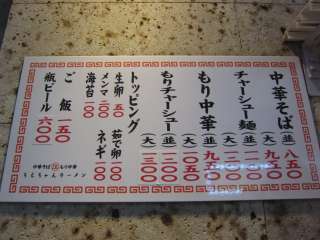 中華そば (並) 八五〇
(大) 九五〇
チャーシュー麺 (並)
(大)
もり中華 (並) 九五〇
(大) 一〇五〇
もりチャーシュー (並) 一二〇〇
(大) 一三〇〇
トッピング
生卵 五〇 茹で卵 一〇〇
メンマ 二〇〇 ネギ 一〇〇
海苔 一〇〇
ご飯 一五〇
瓶ビール 六〇〇
中華そば もり中華
ちゃんラーメン